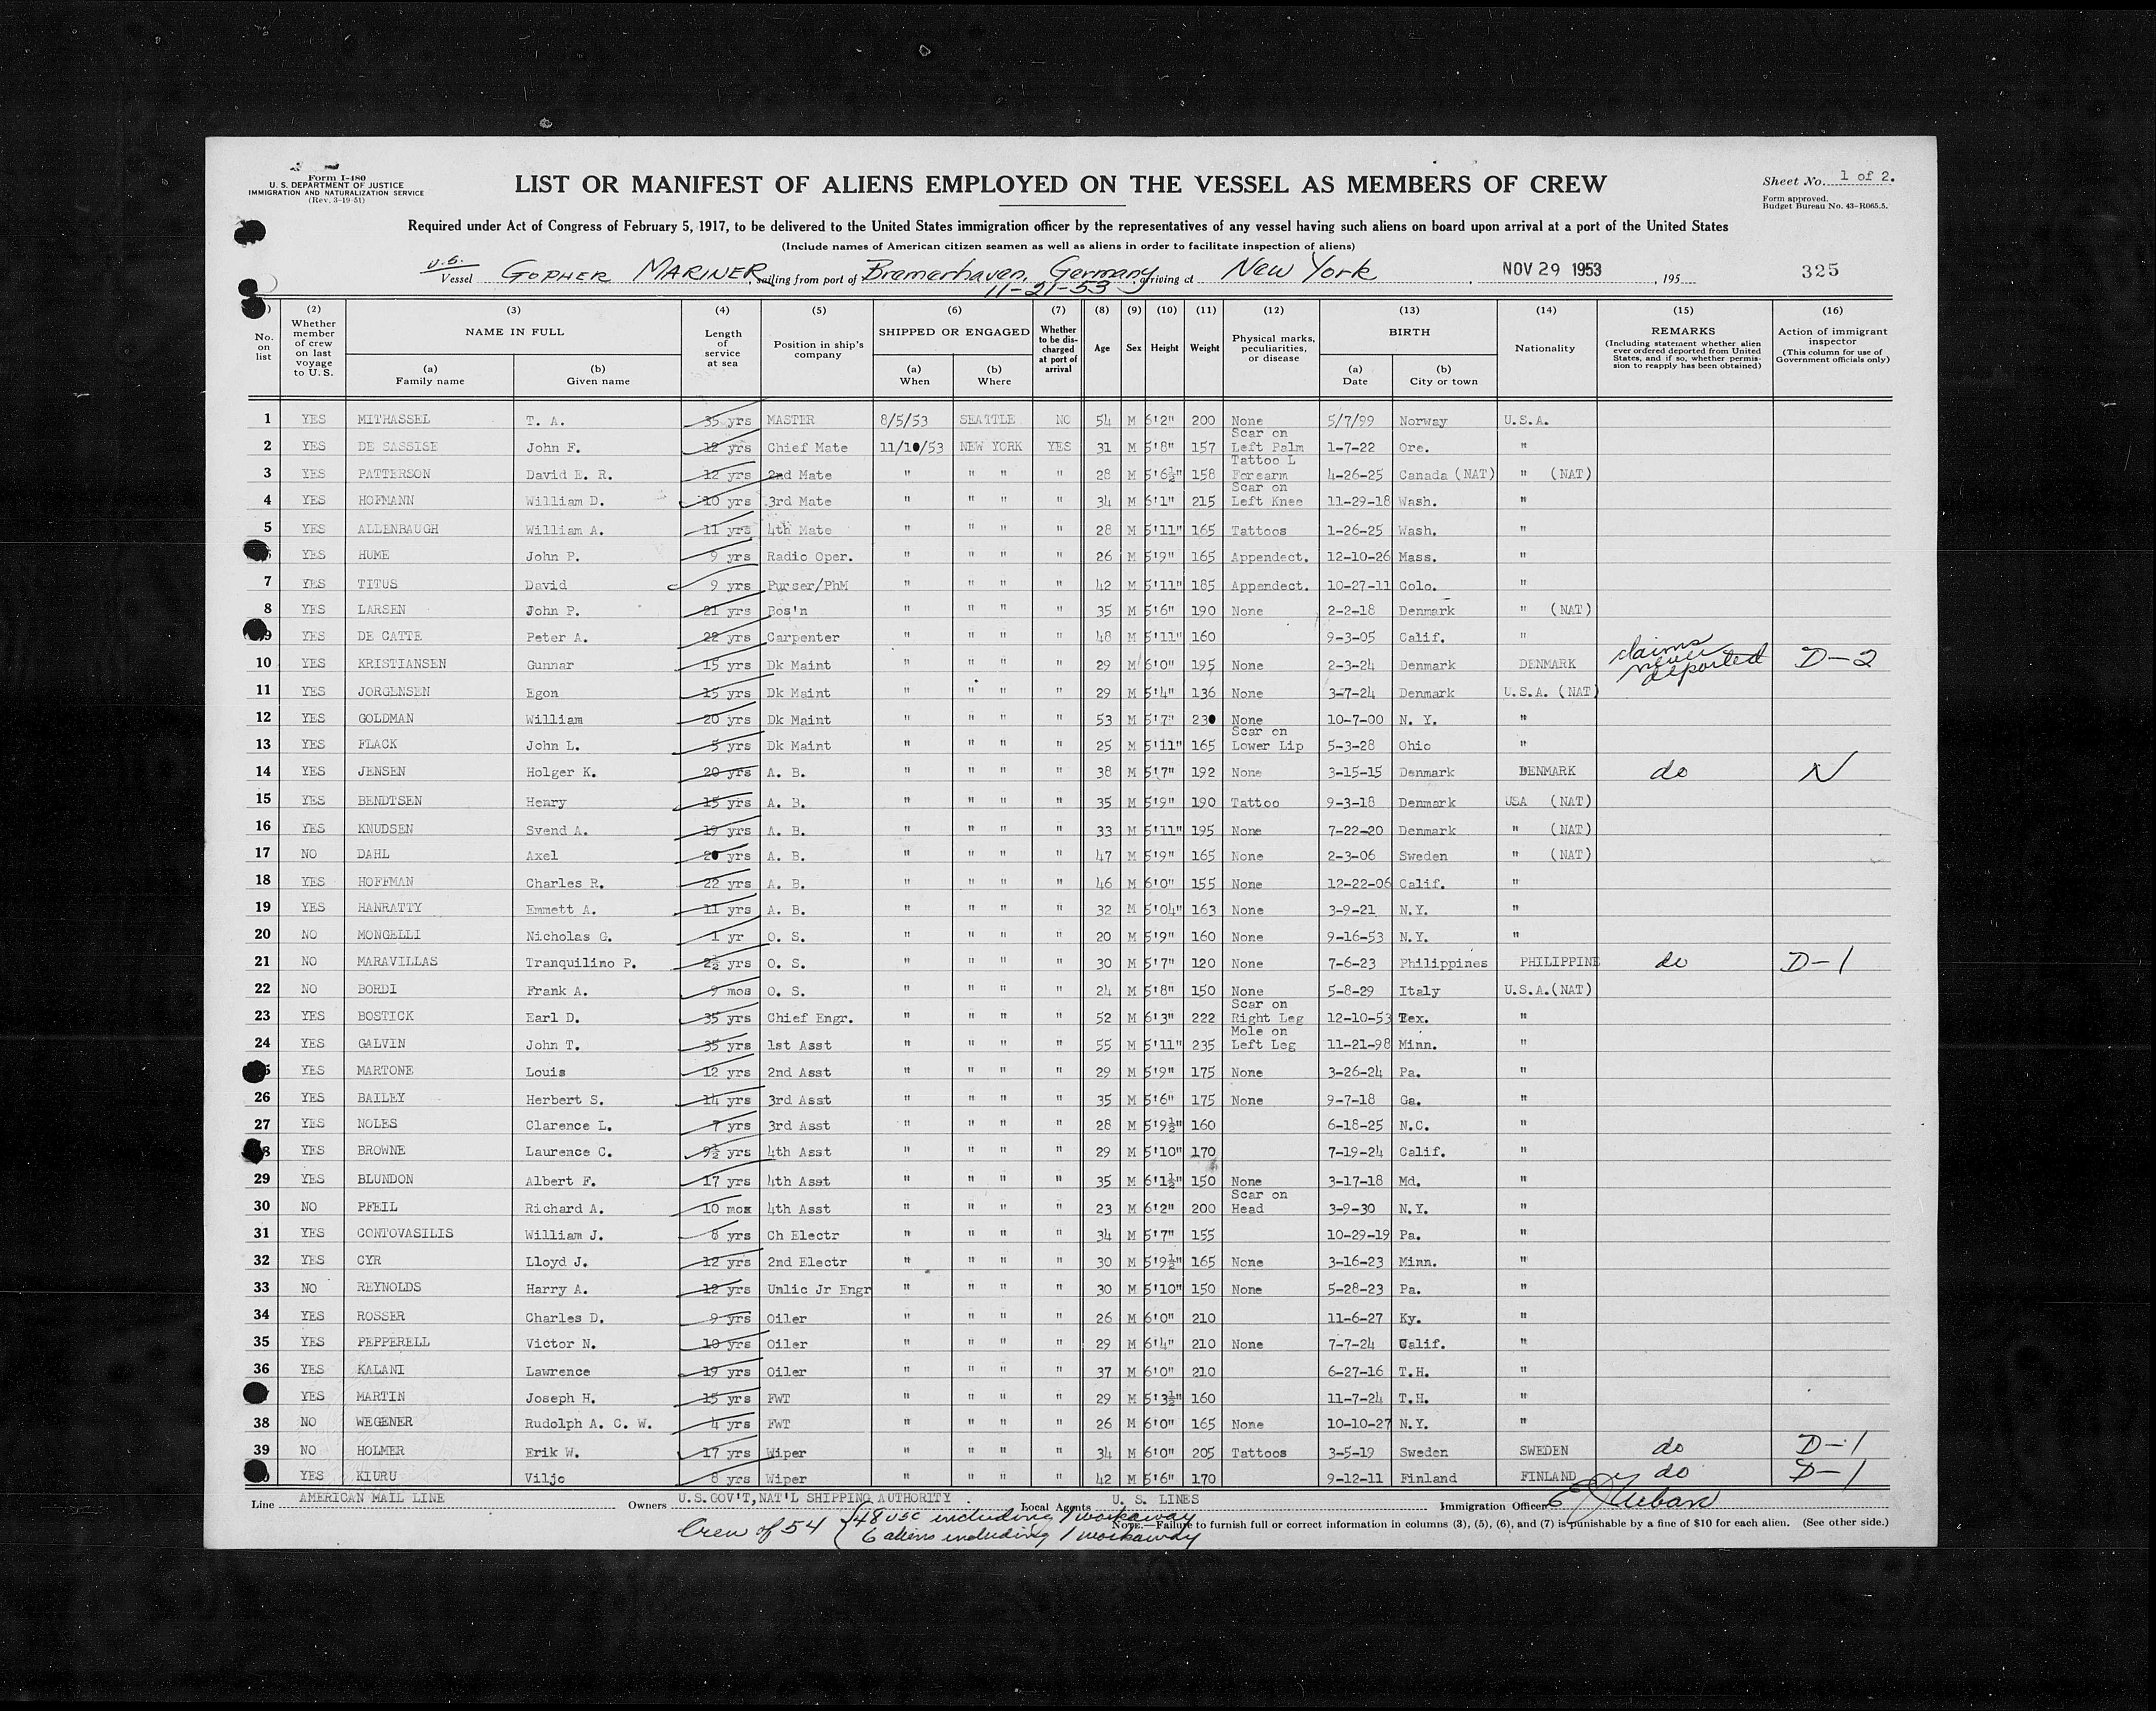 Form I-480
U. S. DEPARTMENT OF JUSTICE
IMMIGRATION AND NATURALIZATION SERVICE
(Rev. 3-19-51)
LIST OR MANIFEST OF ALIENS EMPLOYED ON THE VESSEL AS MEMBERS OF CREW
Sheet No. 1 of 2.
Form approved.
Budget Bureau No. 43-R065.5.
Required under Act of Congress of February 5, 1917, to be delivered to the United States immigration officer by the representatives of any vessel having such aliens on board upon arrival at a port of the United States
(Include names of American citizen seamen as well as aliens in order to facilitate inspection of aliens)
U.S.
Vessel GOPHER MARINER, sailing from port of Bremerhaven, Germany arriving at New York, NOV 29 1953, 195 325
11-21-53
(1) (2) (3) (4) (5) (6) (7) (8) (9) (10) (11) (12) (13) (14) (15) (16)
No. on list
Whether member of crew on last voyage to U. S.
NAME IN FULL
(a) Family name
(b) Given name
Length of service at sea
Position in ship's company
SHIPPED OR ENGAGED
(a) When
(b) Where
Whether to be discharged at port of arrival
Age
Sex
Height
Weight
Physical marks, peculiarities, or disease
BIRTH
(a) Date
(b) City or town
Nationality
REMARKS
(Including statement whether alien ever ordered deported from United States, and if so, whether permission to reapply has been obtained)
Action of immigrant inspector
(This column for use of Government officials only)
1 YES MITHASSEL T. A. 35 yrs MASTER 8/5/53 SEATTLE NO 54 M 6'2" 200 None 5/7/99 Norway U.S.A.
2 YES DE SASSISE John F. 12 yrs Chief Mate 11/10/53 NEW YORK YES 31 M 5'8" 157 Scar on Left Palm 1-7-22 Ore. "
3 YES PATTERSON David E. R. 12 yrs 2nd Mate " " " " 28 M 5'6½" 158 Tattoo L Forearm 4-26-25 Canada (NAT) " (NAT)
4 YES HOFMANN William D. 10 yrs 3rd Mate " " " " 34 M 6'1" 215 Scar on Left Knee 11-29-18 Wash. "
5 YES ALLENBAUGH William A. 11 yrs 4th Mate " " " " 28 M 5'11" 165 Tattoos 1-26-25 Wash. "
YES HUME John P. 9 yrs Radio Oper. " " " " 26 M 5'9" 165 Appendect. 12-10-26 Mass. "
7 YES TITUS David 9 yrs Purser/PhM " " " " 42 M 5'11" 185 Appendect. 10-27-11 Colo. "
8 YES LARSEN John P. 21 yrs Bos'n " " " " 35 M 5'6" 190 None 2-2-18 Denmark " (NAT)
9 YES DE CATTE Peter A. 22 yrs Carpenter " " " " 48 M 5'11" 160 9-3-05 Calif. "
10 YES KRISTIANSEN Gunnar 15 yrs Dk Maint " " " " 29 M 6'0" 195 None 2-3-24 Denmark DENMARK claims never deported D-2
11 YES JORGENSEN Egon 15 yrs Dk Maint " " " " 29 M 5'4" 136 None 3-7-24 Denmark U.S.A. (NAT)
12 YES GOLDMAN William 20 yrs Dk Maint " " " " 53 M 5'7" 230 None 10-7-00 N. Y. "
13 YES FLACK John L. 5 yrs Dk Maint " " " " 25 M 5'11" 165 Scar on Lower Lip 5-3-28 Ohio "
14 YES JENSEN Holger K. 20 yrs A. B. " " " " 38 M 5'7" 192 None 3-15-15 Denmark DENMARK do N
15 YES BENDTSEN Henry 15 yrs A. B. " " " " 35 M 5'9" 190 Tattoo 9-3-18 Denmark USA (NAT)
16 YES KNUDSEN Svend A. 19 yrs A. B. " " " " 33 M 5'11" 195 None 7-22-20 Denmark " (NAT)
17 NO DAHL Axel 20 yrs A. B. " " " " 47 M 5'9" 165 None 2-3-06 Sweden " (NAT)
18 YES HOFFMAN Charles R. 22 yrs A. B. " " " " 46 M 6'0" 155 None 12-22-06 Calif. "
19 YES HANRATTY Emmett A. 11 yrs A. B. " " " " 32 M 5'04" 163 None 3-9-21 N.Y. "
20 NO MONGELLI Nicholas G. 1 yr O. S. " " " " 20 M 5'9" 160 None 9-16-53 N.Y. "
21 NO MARAVILLAS Tranquilino P. 2½ yrs O. S. " " " " 30 M 5'7" 120 None 7-6-23 Philippines PHILIPPINE do D-1
22 NO BORDI Frank A. 9 mos O. S. " " " " 24 M 5'8" 150 None 5-8-29 Italy U.S.A.(NAT)
23 YES BOSTICK Earl D. 35 yrs Chief Engr. " " " " 52 M 6'3" 222 Scar on Right Leg 12-10-53 Tex. "
24 YES GALVIN John T. 35 yrs 1st Asst " " " " 55 M 5'11" 235 Mole on Left Leg 11-21-98 Minn. "
YES MARTONE Louis 12 yrs 2nd Asst " " " " 29 M 5'9" 175 None 3-26-24 Pa. "
26 YES BAILEY Herbert S. 14 yrs 3rd Asst " " " " 35 M 5'6" 175 None 9-7-18 Ga. "
27 YES NOLES Clarence L. 7 yrs 3rd Asst " " " " 28 M 5'9½" 160 6-18-25 N.C. "
YES BROWNE Laurence C. 9½ yrs 4th Asst " " " " 29 M 5'10" 170 7-19-24 Calif. "
29 YES BLUNDON Albert F. 17 yrs 4th Asst " " " " 35 M 6'1½" 150 None 3-17-18 Md. "
30 NO PFEIL Richard A. 10 mos 4th Asst " " " " 23 M 6'2" 200 Scar on Head 3-9-30 N.Y. "
31 YES CONTOVASILIS William J. 8 yrs Ch Electr " " " " 34 M 5'7" 155 10-29-19 Pa. "
32 YES CYR Lloyd J. 12 yrs 2nd Electr " " " " 30 M 5'9½" 165 None 3-16-23 Minn. "
33 NO REYNOLDS Harry A. 12 yrs Unlic Jr Engr " " " " 30 M 5'10" 150 None 5-28-23 Pa. "
34 YES ROSSER Charles D. 9 yrs Oiler " " " " 26 M 6'0" 210 11-6-27 Ky. "
35 YES PEPPERELL Victor N. 10 yrs Oiler " " " " 29 M 6'4" 210 None 7-7-24 Calif. "
36 YES KALANI Lawrence 19 yrs Oiler " " " " 37 M 6'0" 210 6-27-16 T.H. "
YES MARTIN Joseph H. 15 yrs FWT " " " " 29 M 5'3½" 160 11-7-24 T.H. "
38 NO WEGENER Rudolph A. C. W. 4 yrs FWT " " " " 26 M 6'0" 165 None 10-10-27 N.Y. "
39 NO HOLMER Erik W. 17 yrs Wiper " " " " 34 M 6'0" 205 Tattoos 3-5-19 Sweden SWEDEN do D-1
YES KIURU Viljo 8 yrs Wiper " " " " 42 M 5'6" 170 9-12-11 Finland FINLAND do D-1
Line AMERICAN MAIL LINE Owners U.S.GOV'T,NAT'L SHIPPING AUTHORITY. Local Agents U. S. LINES Immigration Officer
Crew of 54 { 48 USC including 1 workaway
6 aliens including 1 workaway
NOTE.—Failure to furnish full or correct information in columns (3), (5), (6), and (7) is punishable by a fine of $10 for each alien. (See other side.)